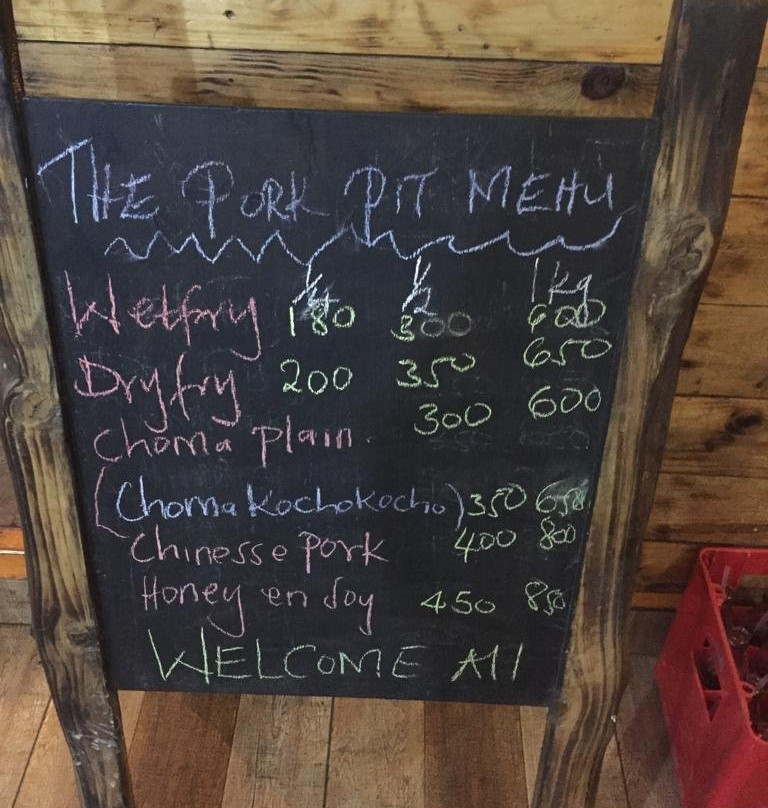 THE PORK PIT MENU
1/4 1/2 1kg
Wetfry 180 300 600
Dryfry 200 350 650
choma plain. 300 600
(Choma Kochokocho) 350 650
Chinesse pork 400 800
Honey en Soy 450 850
WELCOME All